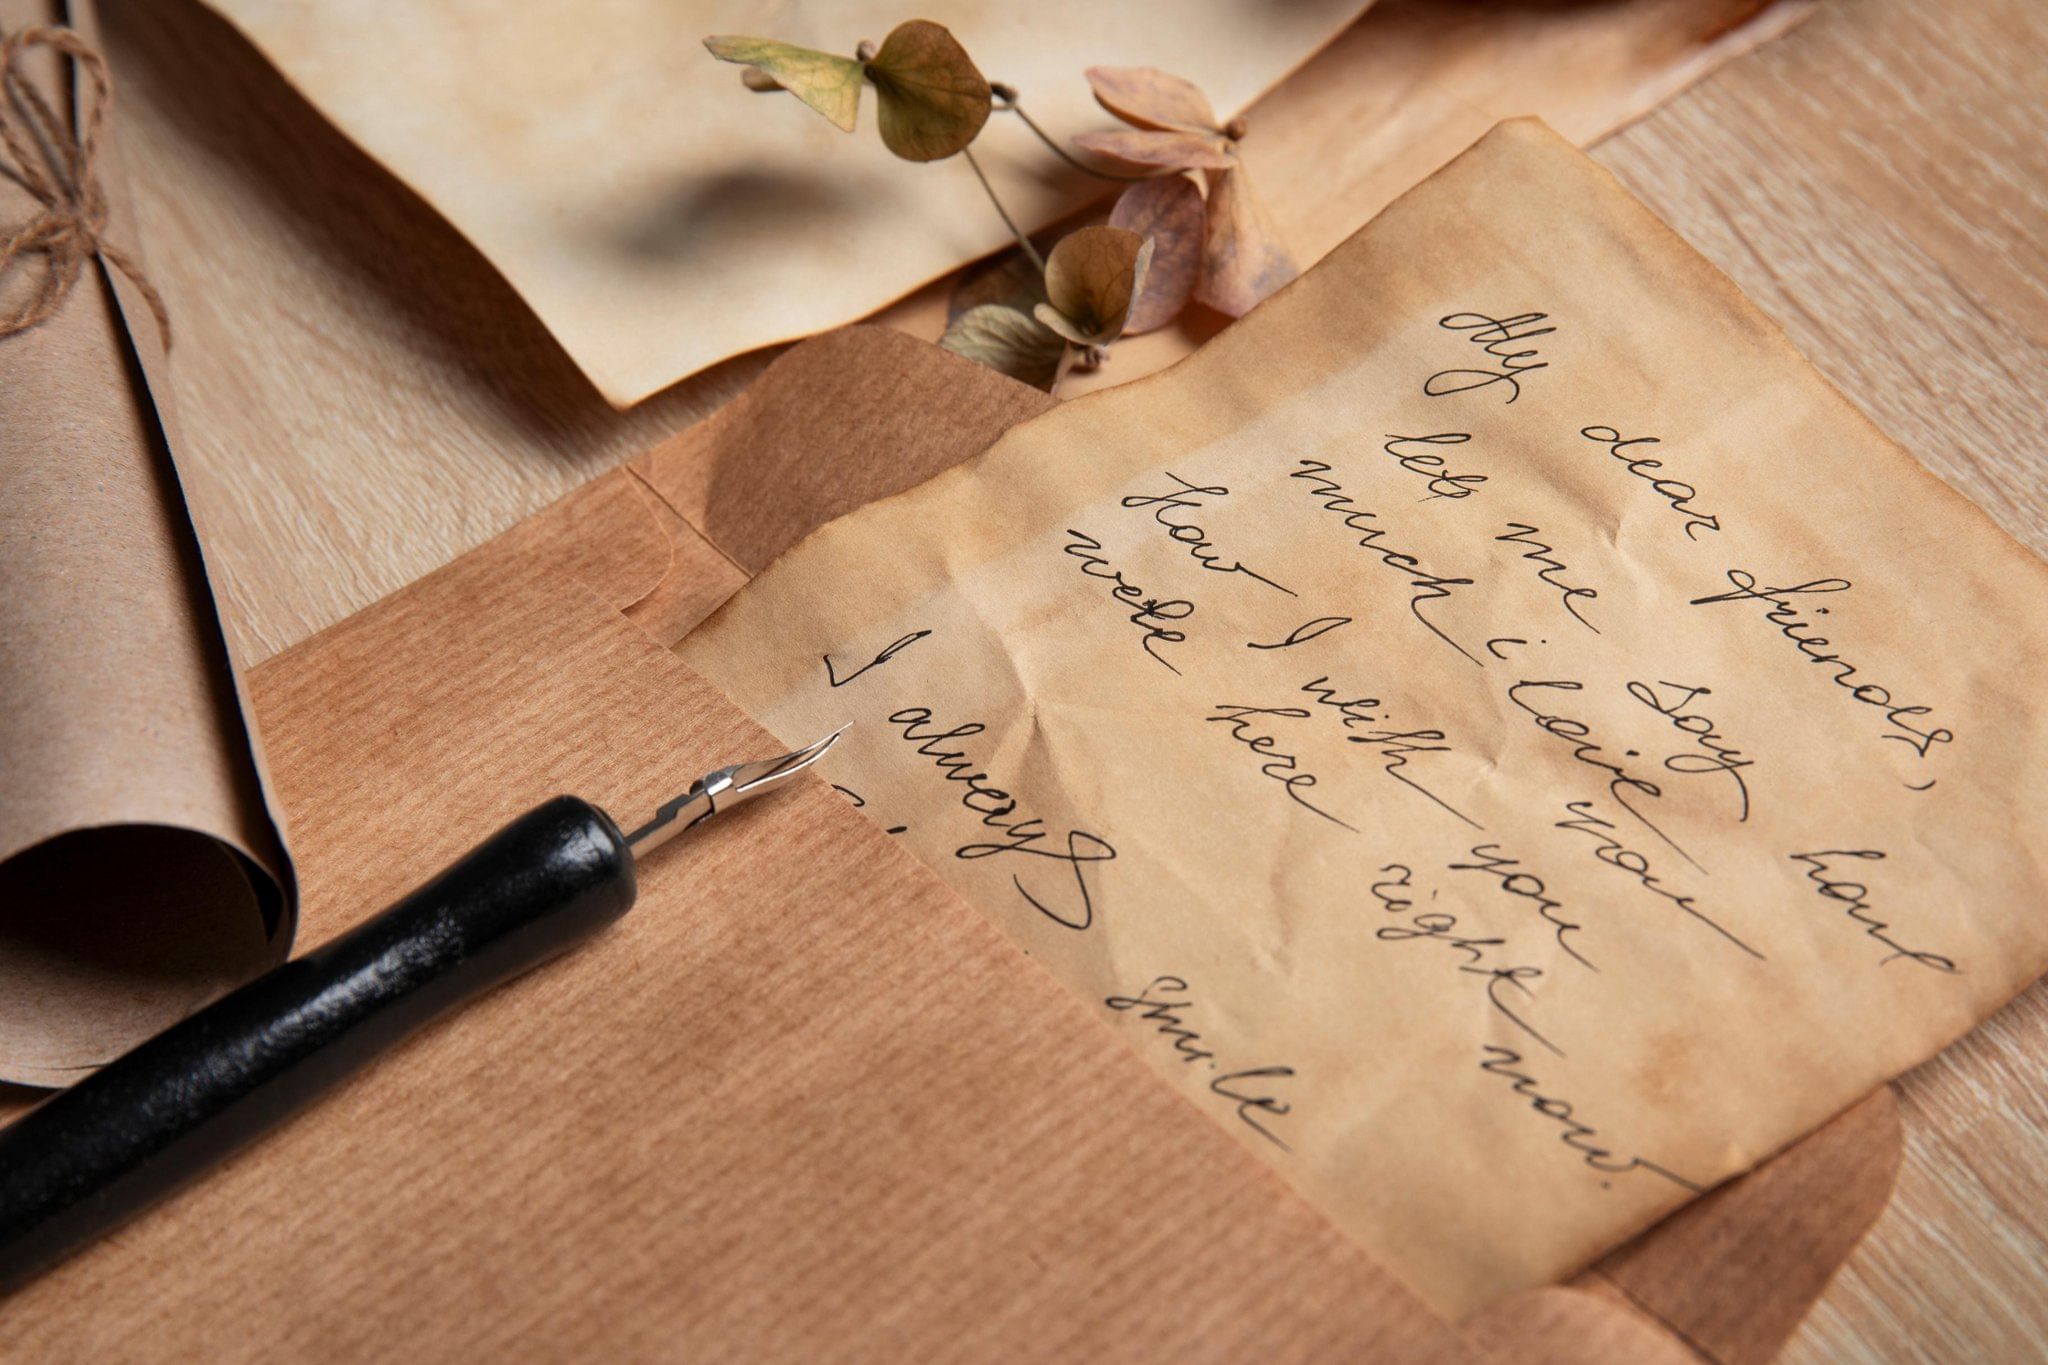 My dear friends,
let me say how
much i love you
How I wish you
were here right now.
I always smile